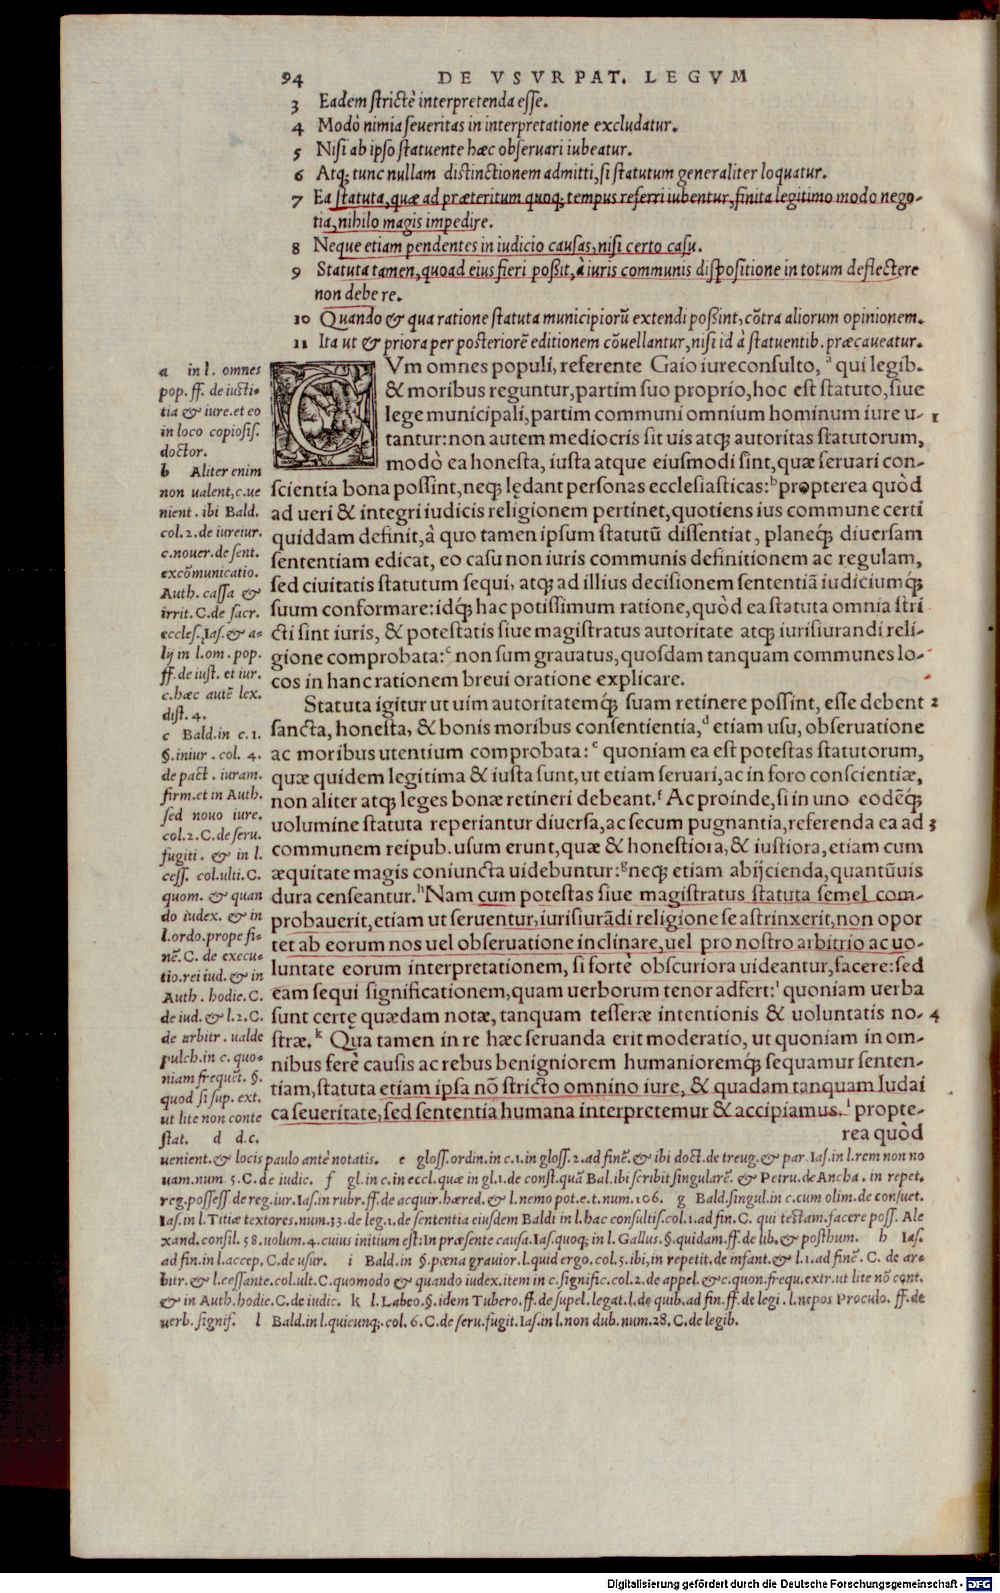 94 DE VSVRPAT. LEGVM
3 Eadem strictè interpretenda esse.
4 Modò nimia seueritas in interpretatione excludatur.
5 Nisi ab ipso statuente hæc obseruari iubeatur.
6 Atq; tunc nullam distinctionem admitti, si statutum generaliter loquatur.
7 Ea statuta, quæ ad præteritum quoq; tempus referri iubentur, finita legitimo modo nego-
tia, nihilo magis impedire.
8 Neque etiam pendentes in iudicio causas, nisi certo casu.
9 Statuta tamen, quoad eius fieri poßit, à iuris communis dispositione in totum deflectere
non debere.
10 Quando & qua ratione statuta municipiorū extendi poßint, cōtra aliorum opinionem.
11 Ita ut & priora per posteriorē editionem cōuellantur, nisi id à statuentib. præcaueatur.
CVm omnes populi, referente Gaio iureconsulto, a qui legib.
& moribus reguntur, partim suo proprio, hoc est statuto, siue
lege municipali, partim communi omnium hominum iure u- 1
tantur: non autem mediocris sit uis atq; autoritas statutorum,
modò ea honesta, iusta atque eiusmodi sint, quæ seruari con-
scientia bona possint, neq; lędant personas ecclesiasticas: b propterea quòd
ad ueri & integri iudicis religionem pertinet, quotiens ius commune certi
quiddam definit, à quo tamen ipsum statutū dissentiat, planeq́; diuersam
sententiam edicat, eo casu non iuris communis definitionem ac regulam,
sed ciuitatis statutum sequi, atq; ad illius decisionem sententiā iudiciumq́;
suum conformare: idq́; hac potissimum ratione, quòd ea statuta omnia stri
cti sint iuris, & potestatis siue magistratus autoritate atq; iurisiurandi reli-
gione comprobata: c non sum grauatus, quosdam tanquam communes lo-
cos in hanc rationem breui oratione explicare.
Statuta igitur ut uim autoritatemq́; suam retinere possint, esse debent 2
sancta, honesta, & bonis moribus consentientia, d etiam usu, obseruatione
ac moribus utentium comprobata: e quoniam ea est potestas statutorum,
quæ quidem legitima & iusta sunt, ut etiam seruari, ac in foro conscientiæ,
non aliter atq; leges bonæ retineri debeant. f Ac proinde, si in uno eodēq́;
uolumine statuta reperiantur diuersa, ac secum pugnantia, referenda ea ad 3
communem reipub. usum erunt, quæ & honestiora, & iustiora, etiam cum
æquitate magis coniuncta uidebuntur: g neq; etiam abijcienda, quantūuis
dura censeantur. h Nam cum potestas siue magistratus statuta semel com-
probauerit, etiam ut seruentur, iurisiurādi religione se astrinxerit, non opor
tet ab eorum nos uel obseruatione inclinare, uel pro nostro arbitrio ac uo-
luntate eorum interpretationem, si fortè obscuriora uideantur, facere: sed
eam sequi significationem, quam uerborum tenor adfert: i quoniam uerba
sunt certę quædam notæ, tanquam tesseræ intentionis & uoluntatis no- 4
stræ. k Qua tamen in re hæc seruanda erit moderatio, ut quoniam in om-
nibus ferè causis ac rebus benigniorem humanioremq́; sequamur senten-
tiam, statuta etiam ipsa nō stricto omnino iure, & quadam tanquam Iudai
ca seueritate, sed sententia humana interpretemur & accipiamus. l propte-
rea quòd
a in l. omnes
pop. ff. de iusti-
tia & iure. et eo
in loco copiosiß.
doctor.
b Aliter enim
non ualent, c. ue
nient. ibi Bald.
col. 2. de iureiur.
c. nouer. de sent.
excōmunicatio.
Auth. cassa &
irrit. C. de sacr.
eccles. Ias. & a-
lij in l. om. pop.
ff. de iust. et iur.
c. hæc autē lex.
dist. 4.
c Bald. in c. 1.
§. iniur. col. 4.
de pact. iuram.
firm. et in Auth.
sed nouo iure.
col. 2. C. de seru.
fugiti. & in l.
cess. col. ulti. C.
quom. & quan
do iudex. & in
l. ordo. prope fi-
nē. C. de execu-
tio. rei iud. & in
Auth. hodie. C.
de iud. & l. 2. C.
de arbitr. ualde
pulch. in c. quo-
niam frequēt. §.
quod si sup. ext.
ut lite non conte
stat. d d. c.
uenient. & locis paulo antè notatis. e gloss. ordin. in c. 1. in gloss. 2. ad finē. & ibi doct. de treug. & par. Ias. in l. rem non no
uam. num. 5. C. de iudic. f gl. in c. in eccl. quæ in gl. 1. de const. quā Bal. ibi scribit singularē. & Petru. de Ancha. in repet.
reg. possess. de reg. iur. Ias. in rubr. ff. de acquir. hæred. & l. nemo pot. e. t. num. 106. g Bald. singul. in c. cum olim. de consuet.
Ias. in l. Titiæ textores. num. 33. de leg. 1. de sententia eiusdem Baldi in l. hac consultiß. col. 1. ad fin. C. qui testam. facere poss. Ale
xand. consil. 58. uolum. 4. cuius initium est: In præsente causa. Ias. quoq; in l. Gallus. §. quidam. ff. de lib. & posthum. h Ias.
ad fin. in l. accep. C. de usur. i Bald. in §. pœna grauior. l. quid ergo. col. 5. ibi, in repetit. de infant. & l. 1. ad finē. C. de ar-
bitr. & l. cessante. col. ult. C. quomodo & quando iudex. item in c. signific. col. 2. de appel. & c. quon. frequ. extr. ut lite nō cont.
& in Auth. hodie. C. de iudic. k l. Labeo. §. idem Tubero. ff. de supel. legat. l. de quib. ad fin. ff. de legi. l. nepos Proculo. ff. de
uerb. signif. l Bald. in l. quicunq;. col. 6. C. de seru. fugit. Ias. in l. non dub. num. 28. C. de legib.
Digitalisierung gefördert durch die Deutsche Forschungsgemeinschaft - DFG